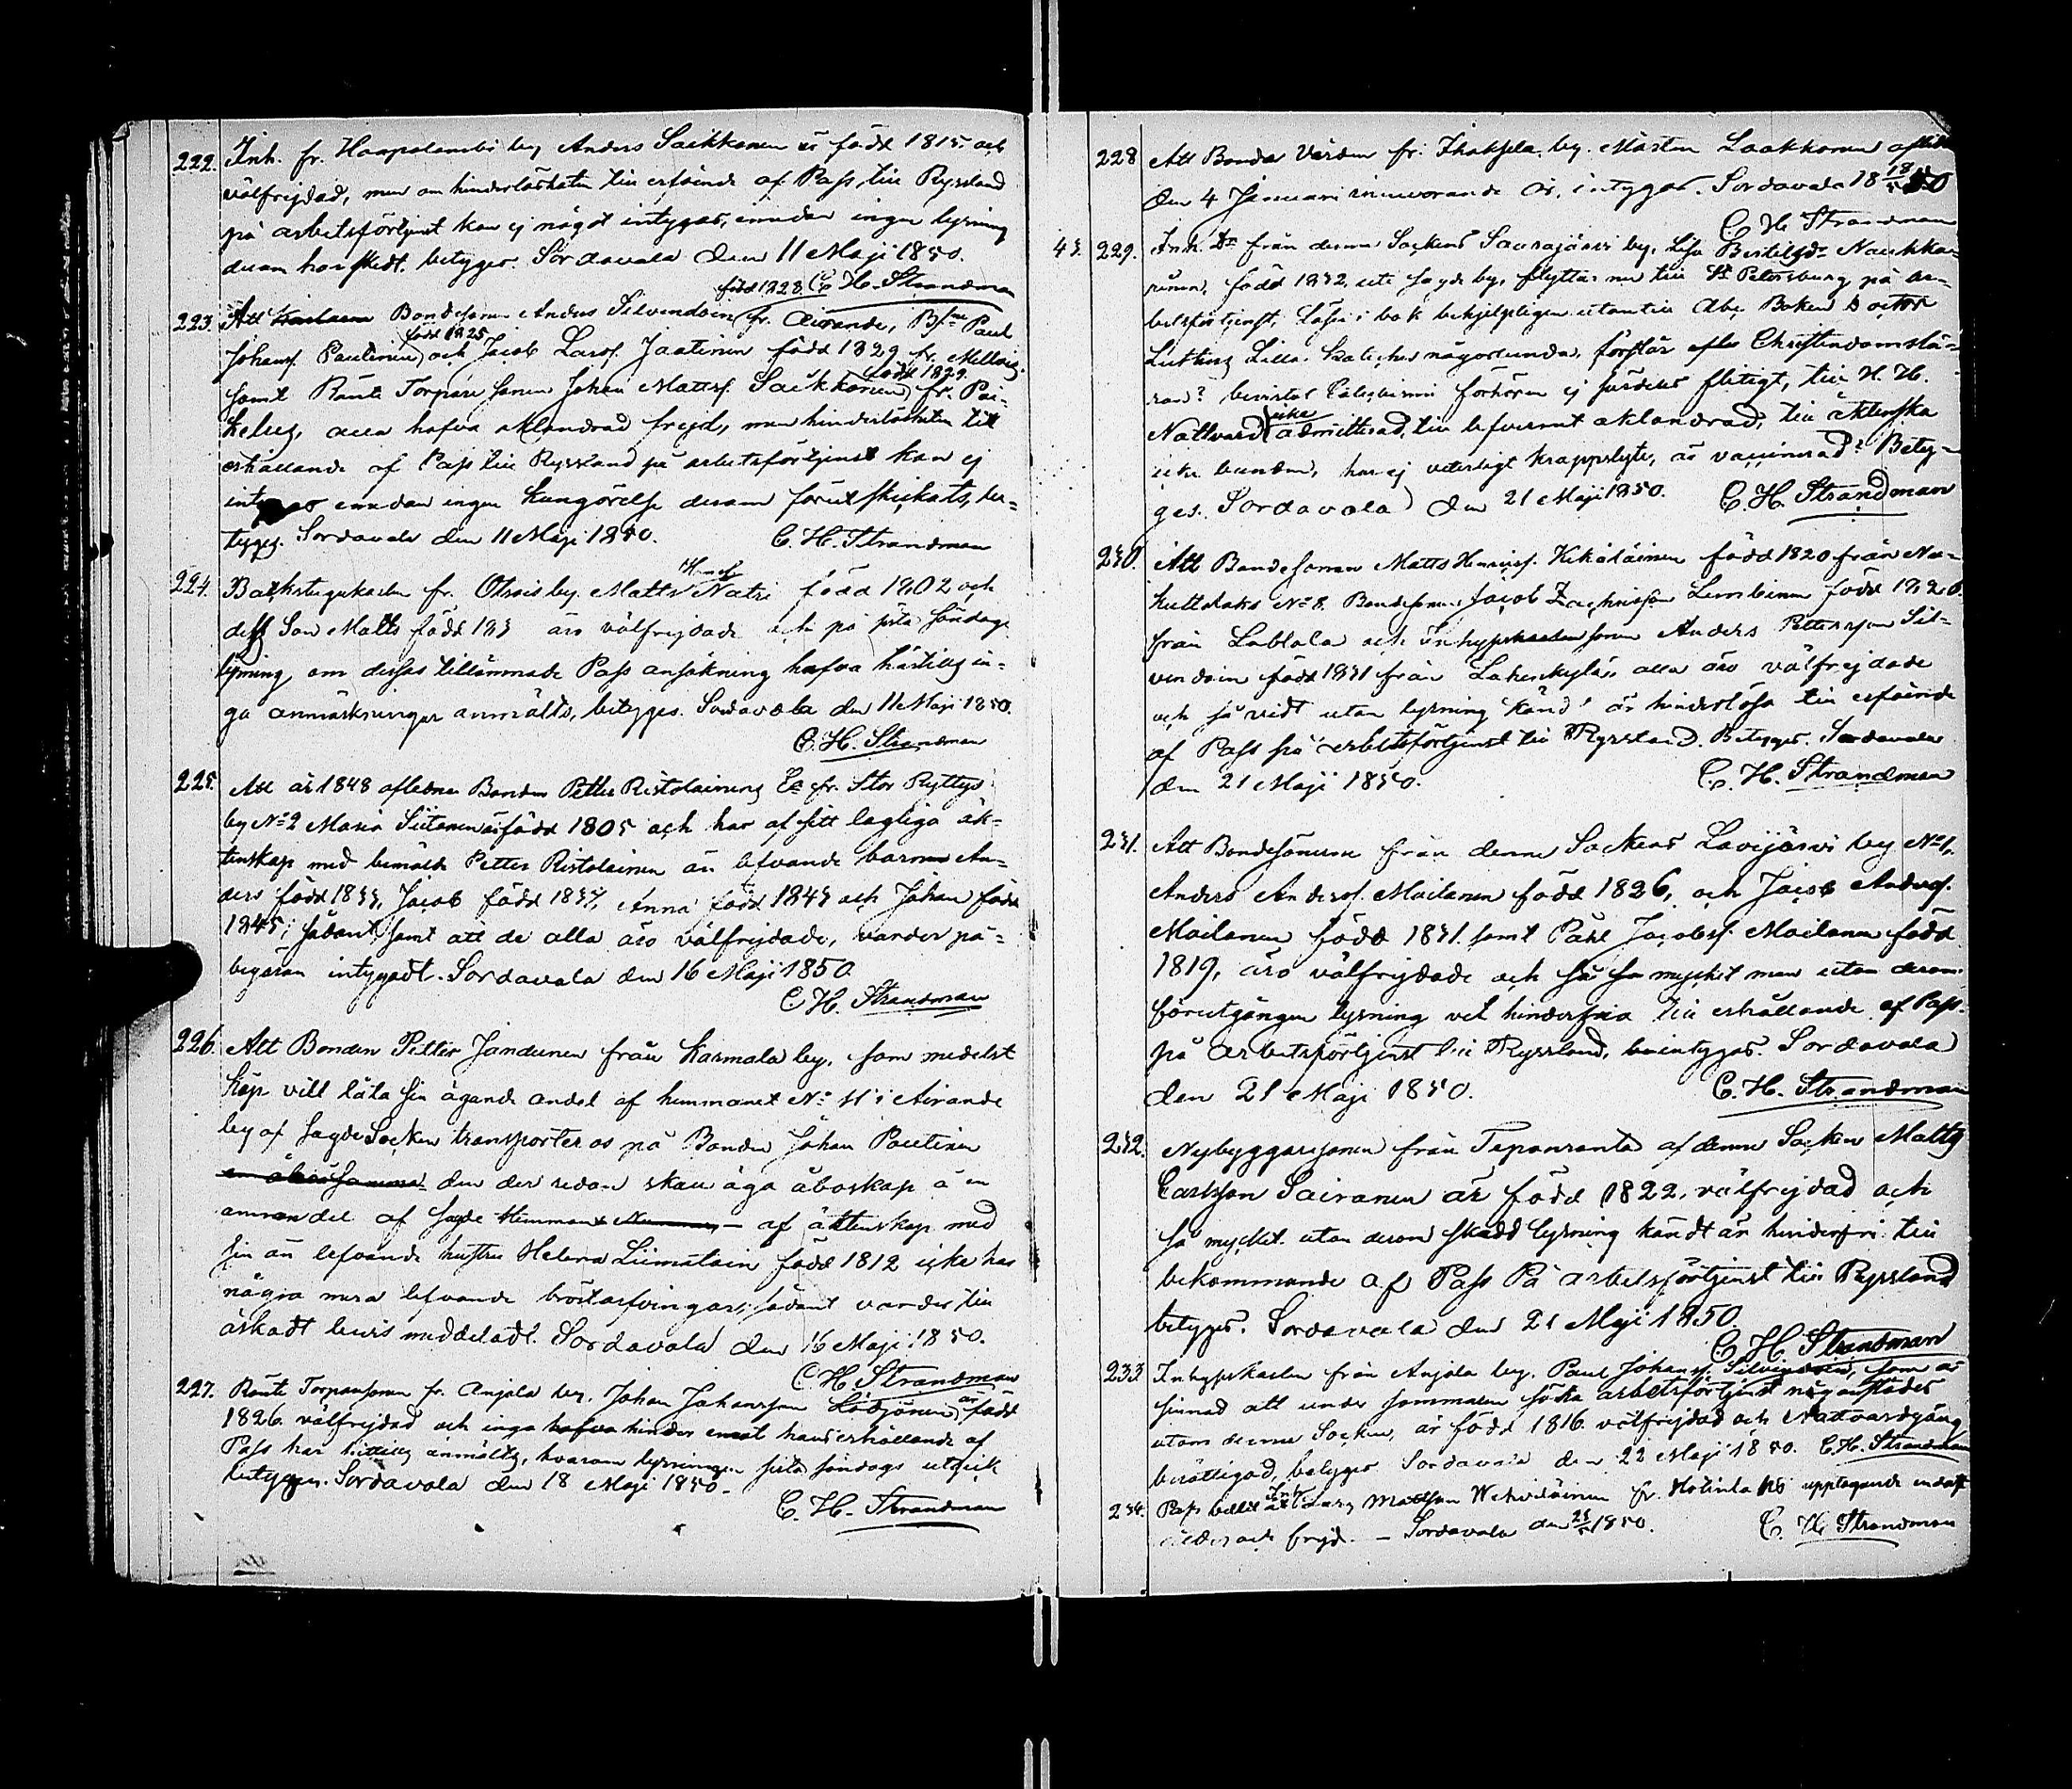 222. Inh. fr. Haapalambi by Anders Saikkonen är född 1815 och
välfrejdad, men om hinderlösheten till erhående af Pass till Ryssland
på arbetsförtjenst kan ej något intygas, emedan ingen lysning
derom har skedt, betygar. Sordavala den 11 Maji 1850.
född 1828 C. H. Strandman
223. Att Bondesonen Anders Silvendoin fr. Airande, Paul
född 1825
Johanss. Pautinen och Jacob Larss. Jaatinen född 1829 fr.
född 1829
samt Ränte Torpare sonen Johan Mattss. Saikkonen fr. Pai-
kelseg, alla hafva oklandrad frejd, men hinderlösheten till
erhållande af Pass till Ryssland på arbetsförtjenst kan ej
emedan ingen kungörelse derom förut skickats, be-
tyges. Sordavala den 11 Maji 1850. C. H. Strandman
224. Backstugukarlen fr. Otsois by Matts Natri född 1802 och
dess Son Matts född 183 äro välfrejdade och på sista Söndags
lysning om dessas tillämnade Pass ansökning hafva härtills in-
ga anmärkningar anmälts, betyges. Sordavala den 11 Maji 1850.
C. H. Strandman
225. Att år 1848 aflednen Bonden Petter Ristolainens Ea fr. Stor Ryttys
by No 2 Maria Siitonen är född 1805 och har af sitt lagliga äk-
tenskap med bemälde Petter Ristolainen än lefvande barnen An-
ders född 1833, Jacob född 1837, Anna född 1843 och Johan född
1845; sådant samt att de alla äro välfrejdade, varder på
begäran intygadt. Sordavala den 16 Maji 1850.
C. H. Strandman
226. Att Bonden Petter Jandunen från Karmala by, som medelst
köp vill låta sin ägande andel af hemmanet No 11 i Airande
by af sagde Socken transporteras på Bonden Johan Pautinen
den der redan skall äga åboskap å en
annan del af sagde Hemman – af äktenskap med
sin än lefvande hustru Helena Liimatain född 1812 icke har
några mera lefvande bröstarfvingar; sådant varder till
äskadt bevis meddeladt. Sordavala den 16 Maji 1850.
C. H. Strandman
227. Ränte Torparsonen fr. Anjala by, Johan Johansson är född
1826. välfrejdad och inga hinder emot hans erhållande af
Pass har hittills anmälts, hvarom lysningen sista söndags utgick
betyges. Sordavala den 18 Maji 1850.
C. H. Strandman
228 Att Bonde Värden fr. by. Mårten Laakkonen afled
den 4 Januari innevarande år, intygas. Sordavala 18 18/5 50
C. H. Strandman
43. 229. Inh. Dr från denna Sockens Saurajärvi by, Lisa Bertilsdr Naukka-
rinen, född 1832 i sagde by, flyttar nu till St Petersburg på ar-
betsförtjenst, Läser i bok behjelpligen utantill Abc Boken Doctor
Luthers Lilla Kateches någorlunda, förstår af Christendomslä-
ran? bevistat Läseförhören ej särdeles flitigt, till H. H.
icke
Nattvard admitterad, till lefvernet oklandrad, till äktenska
icke bunden, har ej veterligt kroppslyte, är vaccinerad? Bety-
ges. Sordavala den 21 Maji 1850. C. H. Strandman
230. Att Bondesonen Matts Henricss. Kekäläinen född 1820 från
No 8. Bondesonen Jacob Zachrisson Lembinen född 1820
från Labtola och Inhyseskarlen sonen Anders Pettersson Sil-
vendoin född 1831 från Lahenkylä, alla äro välfrejdade
och så vidt utan lysning känd är hinderlösa till erhående
af Pass på arbetsförtjenst till Ryssland. Betyges. Sordavala
den 21 Maji 1850. C. H. Strandman
231. Att Bondesönerne från denna Sockens Lavijärvi by No 1,
Anders Anderss. Mailanen född 1826, och Jacob Anderss.
Mailanen född 1831. samt Påhl Jacobss. Mailanen född
1819, äro välfrejdade och så mycket man utan derom
förutgången lysning vet hinderfria till erhållande af Pass
på arbetsförtjenst till Ryssland, intygas. Sordavala
den 21 Maji 1850. C. H. Strandman
232. Nybyggaresonen från Teponranta af denna Socken Matts
Carlsson Sairanen är född 1822, välfrejdad och
så mycket utan derom skedd lysning kändt är hinderfri till
bekommande af Pass På arbetsförtjenst till Ryssland
betyges. Sordavala den 21 Maji 1850.
C. H. Strandman
233 Inhyseskarlen från Anjala by. Paul Johanss. Silvendoin, som är
sinnad att under sommaren söka arbetsförtjenst någonstädes
utom denna Socken, är född 1816. välfrejdad och Nattvardgång
berättigad, betyges Sordavala den 22 Maji 1850. C. H. Strandman
234. Pass Mattsson fr. upptagande endast
ålder och frejd. – Sordavala den 23/5 1850. C. H. Strandman